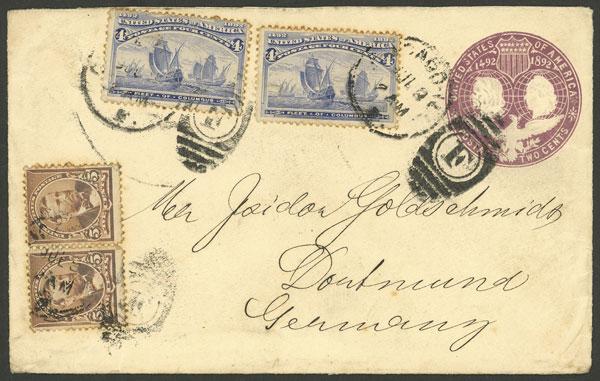 1492 1892
UNITED STATES OF AMERICA
POSTAGE FOUR CENTS
4 4
FLEET OF COLUMBUS
1492 1892
UNITED STATES OF AMERICA
POSTAGE FOUR CENTS
4 4
FLEET OF COLUMBUS
UNITED STATES OF AMERICA
1492 1892
TWO CENTS
JUL
AM
F
F
5 5
5 5
Mr Isidor Goldschmidt
Dortmund
Germany